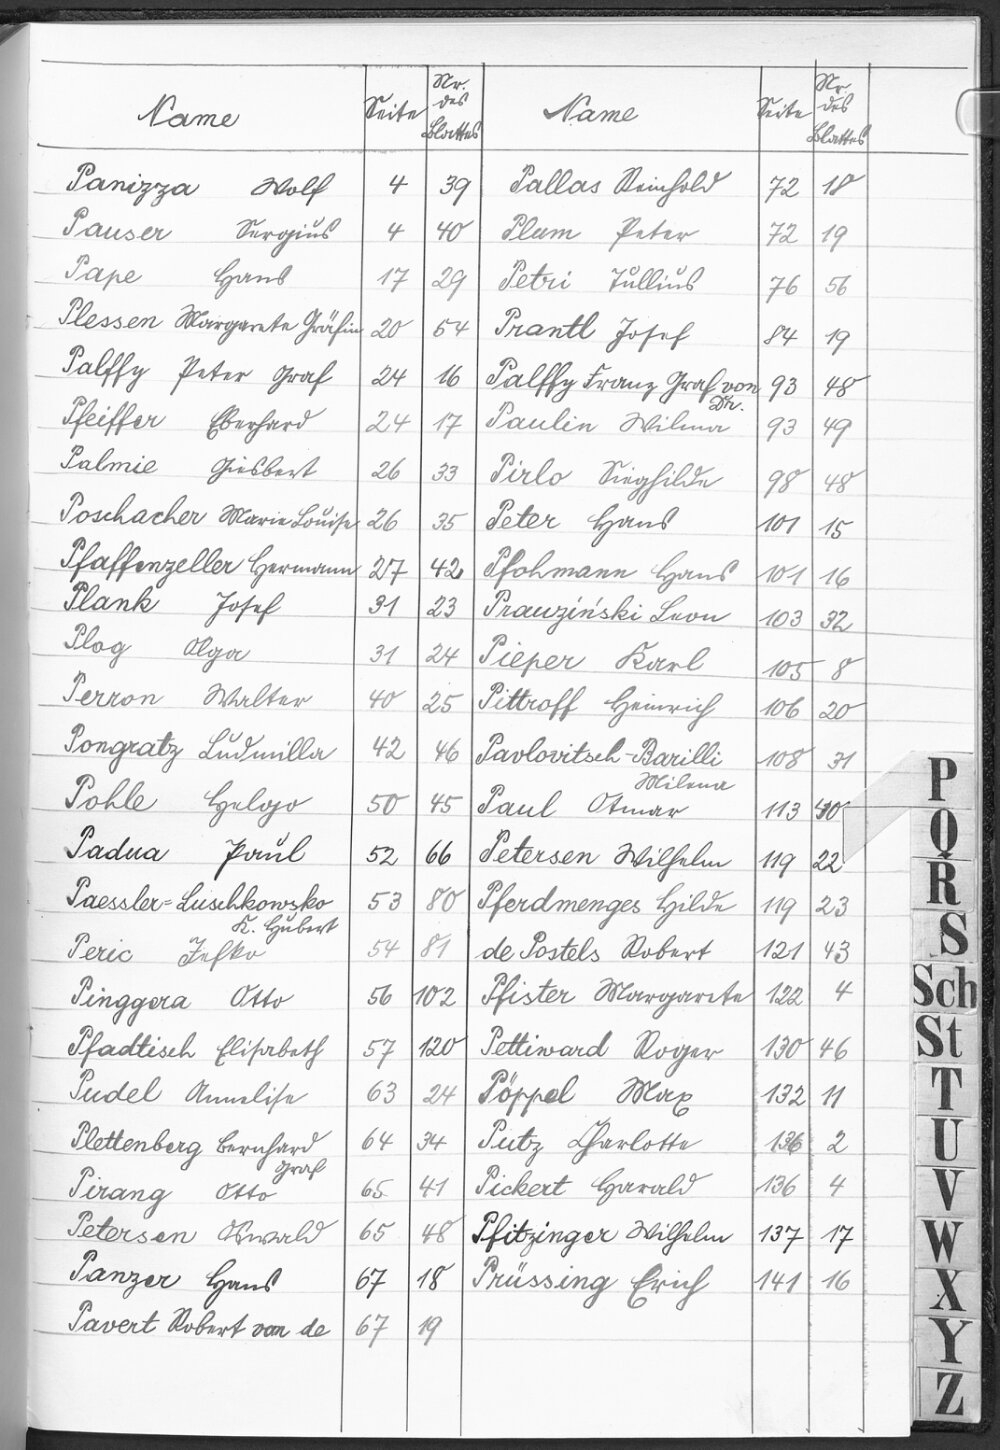 Name Seite Nr. des Blattes Name Seite Nr. des Blattes
Panizza Wolf 4 39
Pauser Sergius 4 40
Pape Hans 17 29
Plessen Margarete Gräfin 20 54
Palffy Peter Graf 24 16
Pfeiffer Eberhard 24 17
Palmie Giesbert 26 33
Poschacher Marie Louise 26 35
Pfaffenzeller Hermann 27 42
Plank Josef 31 23
Plog Olga 31 24
Perron Walter 40 25
Pongratz Ludmilla 42 46
Pohle Helojo 50 45
Padua Paul 52 66
Paessler-Luschkowsko 53 80
K. Hubert
Peric Jefko 54 81
Pinggera Otto 56 102
Pfadtisch Elisabeth 57 120
Pudel Annelise 63 24
Plettenberg Bernhard 64 34
Graf
Pirang Otto 65 41
Petersen Oswald 65 48
Panzer Hans 67 18
Pavert Robert von de 67 19
Pallas Reinhold 72 18
Plum Peter 72 19
Petri Tullius 76 56
Prantl Josef 84 19
Palffy Franz Graf von 93 48
Dr.
Paulin Wilma 93 49
Pirlo Sieghilde 98 48
Peter Hans 101 15
Pfohmann Hans 101 16
Prauziński Leon 103 32
Pieper Karl 105 8
Pittroff Heinrich 106 20
Pavlovitsch-Barilli 108 31
Milena
Paul Otmar 113 40
Petersen Wilhelm 119 22
Pferdmenges Hilde 119 23
de Postels Robert 121 43
Pfister Margarete 122 4
Pettiward Roger 130 46
Pöppel Max 132 11
Putz Charlotte 136 2
Pickert Harald 136 4
Pfitzinger Wilhelm 137 17
Prüssing Erich 141 16
P
Q
R
S
Sch
St
T
U
V
W
X
Y
Z